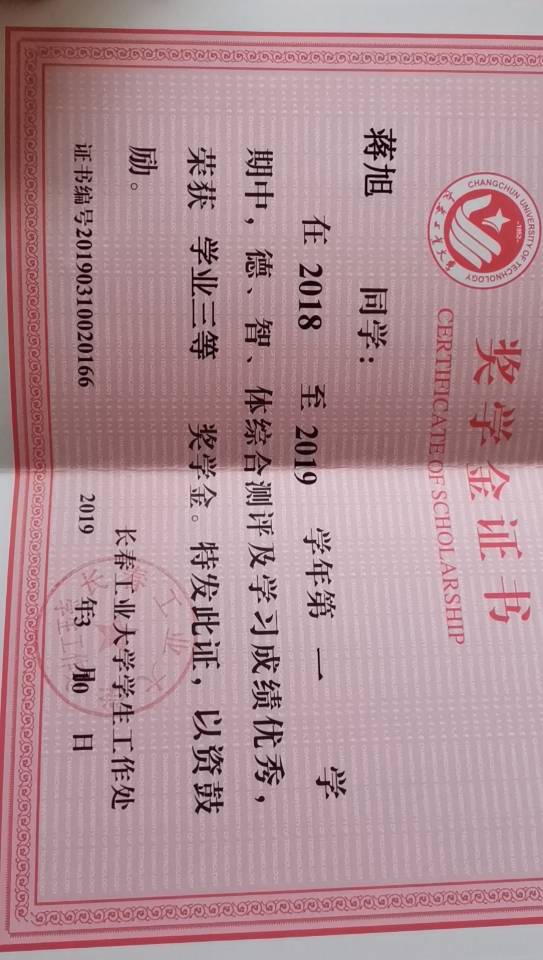 CHANGCHUN UNIVERSITY OF TECHNOLOGY
·1952·
长春工业大学
奖学金证书
CERTIFICATE OF SCHOLARSHIP
蒋旭 同学：
在 2018 至 2019 学年第 一 学
期中，德、智、体综合测评及学习成绩优秀，
荣获 学业三等 奖学金。特发此证，以资鼓
励。
长春工业大学学生工作处
证书编号20190310020166 2019 年3 月10 日